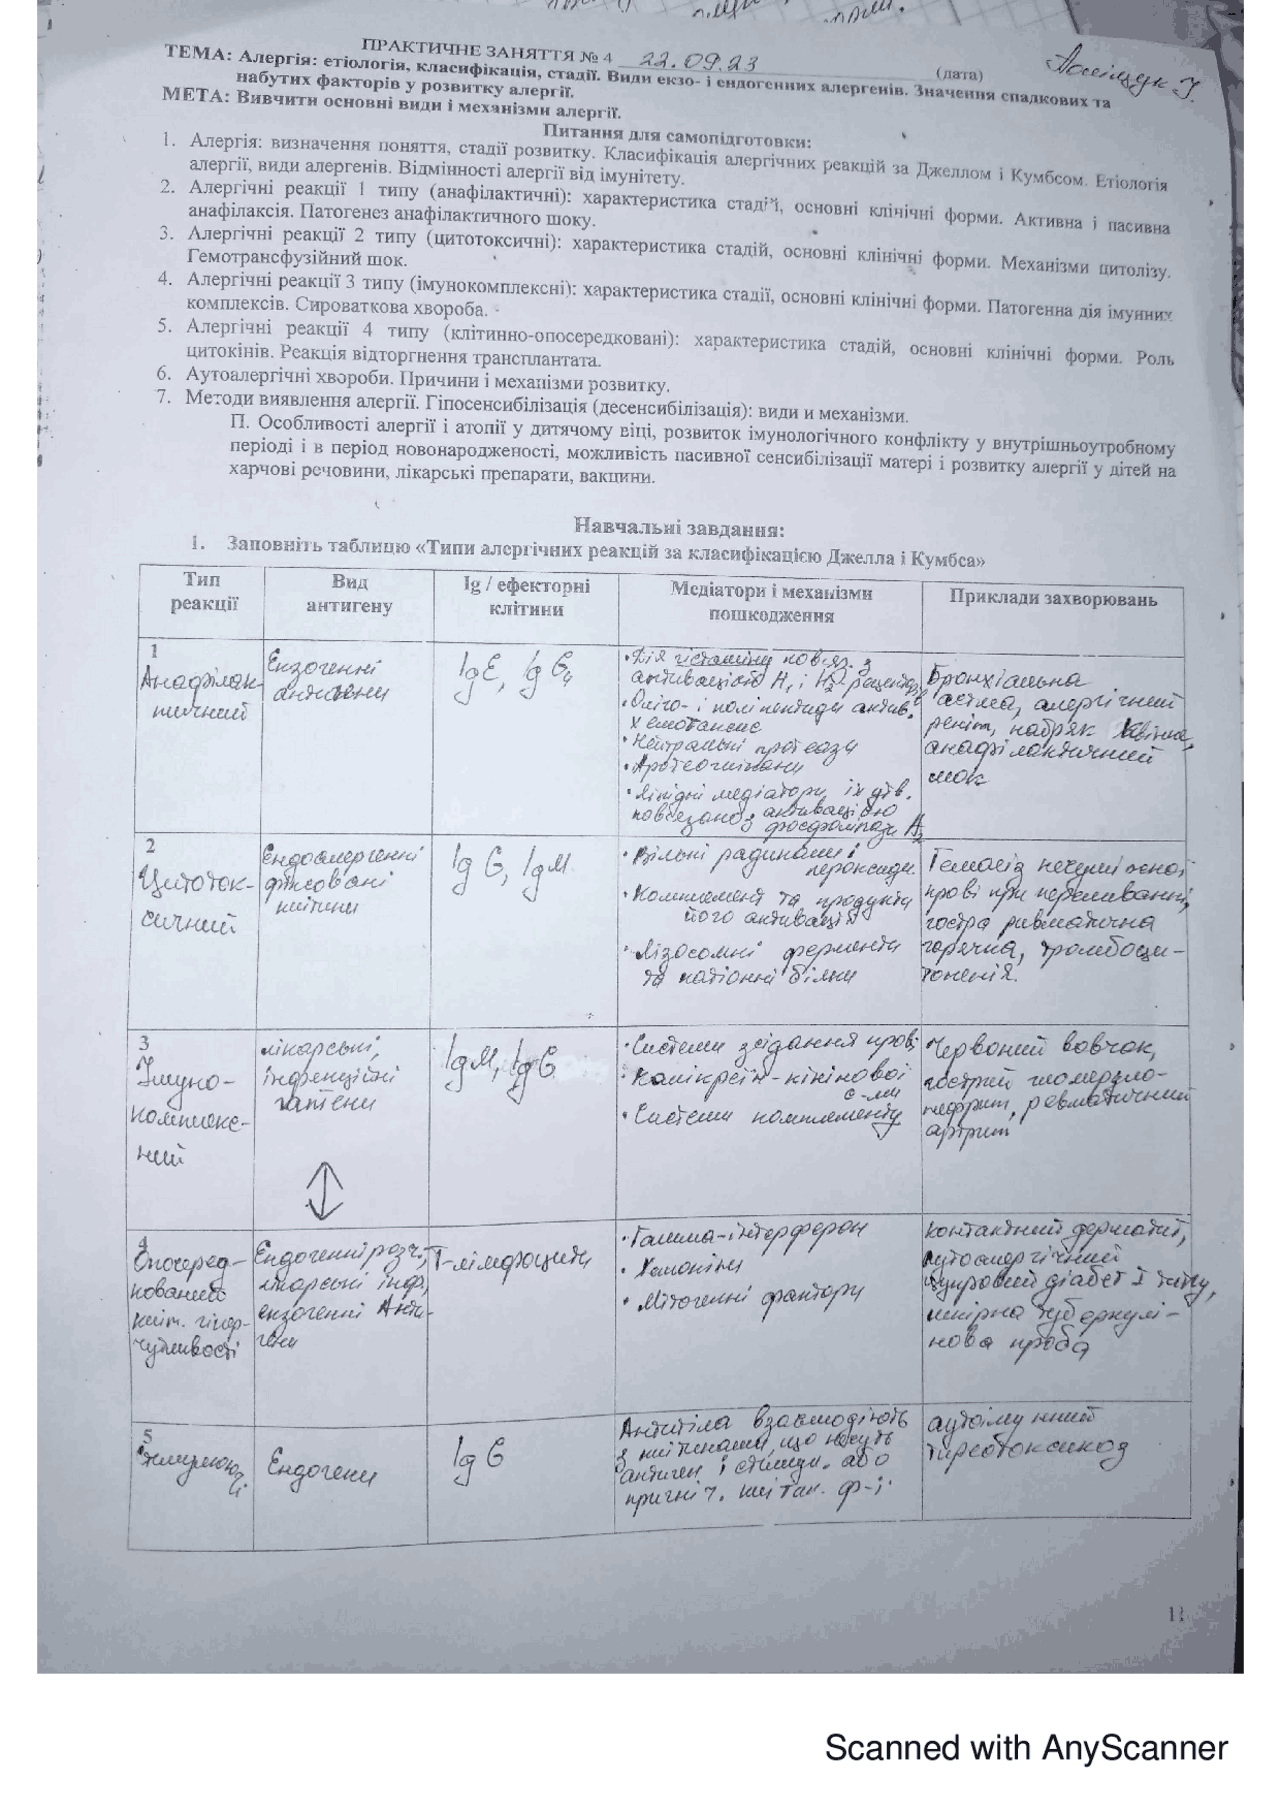 ПРАКТИЧНЕ ЗАНЯТТЯ № 4 22.09.23 (дата)
ТЕМА: Алергія: етіологія, класифікація, стадії. Види екзо- і ендогенних алергенів. Значення спадкових та
набутих факторів у розвитку алергії.
МЕТА: Вивчити основні види і механізми алергії.
Питання для самопідготовки:
1. Алергія: визначення поняття, стадії розвитку. Класифікація алергічних реакцій за Джеллом і Кумбсом. Етіологія
алергії, види алергенів. Відмінності алергії від імунітету.
2. Алергічні реакції 1 типу (анафілактичні): характеристика стадій, основні клінічні форми. Активна і пасивна
анафілаксія. Патогенез анафілактичного шоку.
3. Алергічні реакції 2 типу (цитотоксичні): характеристика стадій, основні клінічні форми. Механізми цитолізу.
Гемотрансфузійний шок.
4. Алергічні реакції 3 типу (імунокомплексні): характеристика стадії, основні клінічні форми. Патогенна дія імунних
комплексів. Сироваткова хвороба.
5. Алергічні реакції 4 типу (клітинно-опосередковані): характеристика стадій, основні клінічні форми. Роль
цитокінів. Реакція відторгнення трансплантата.
6. Аутоалергічні хвороби. Причини і механізми розвитку.
7. Методи виявлення алергії. Гіпосенсибілізація (десенсибілізація): види и механізми.
П. Особливості алергії і атопії у дитячому віці, розвиток імунологічного конфлікту у внутрішньоутробному
періоді і в період новонародженості, можливість пасивної сенсибілізації матері і розвитку алергії у дітей на
харчові речовини, лікарські препарати, вакцини.
Навчальні завдання:
1. Заповніть таблицю «Типи алергічних реакцій за класифікацією Джелла і Кумбса»
Тип
реакції
Вид
антигену
Ig / ефекторні
клітини
Медіатори і механізми
пошкодження
Приклади захворювань
1
Анафілак-
тичний
Екзогенні
антигени
IgE, IgG4
• Дія гістаміну пов'яз. з
активацією H1 і H2 рецепторів
• Оліго- і поліпептиди актив.
хемотаксис
• Нейтральні протеази
• Протеоглікани
• Ліпідні медіатори, їх утв.
пов'язано з активацією
фосфоліпази A2
Бронхіальна
астма, алергічний
реніт, набряк Квінке,
анафілактичний
шок
2
Цитоток-
сичний
Ендоалергенні
фіксовані
клітини
Ig G, IgM.
• Вільні радикали і
пероксиди.
• Комплемент та продукти
його активації
• Лізосомні ферменти
та катіонні білки
Гемоліз несумісної
крові при переливанні,
гостра ривматична
горячка, тромбоци-
топенія.
3
Імуно-
комплекс-
ний
лікарські,
інфекційні
гаптени
IgM, IgG
• Системи зсідання крові
• Калікреїн-кінінової
с-ми
• Системи комплементу
Червоний вовчок,
гострий гломеруло-
нефрит, ревматичний
артрит
4
Опосеред-
кований
кліт. гіпер-
чутливості
Ендогенні розч.,
лікарські інф,
екзогенні Анти-
гени
Т-лімфоцити
• Гамма-інтерферон
• Хемокіни
• Мітогенні фактори
контактний дерматит,
аутоалергічний
цукровий діабет I типу,
шкірна туберкулі-
нова проба
5
Ендогени
Ig G
Антитіла взаємодіють
з клітинами, що несуть
антиген і стимул. або
пригніч. клітин. ф-ї
аутоімунний
тиреотоксикоз
11
Scanned with AnyScanner